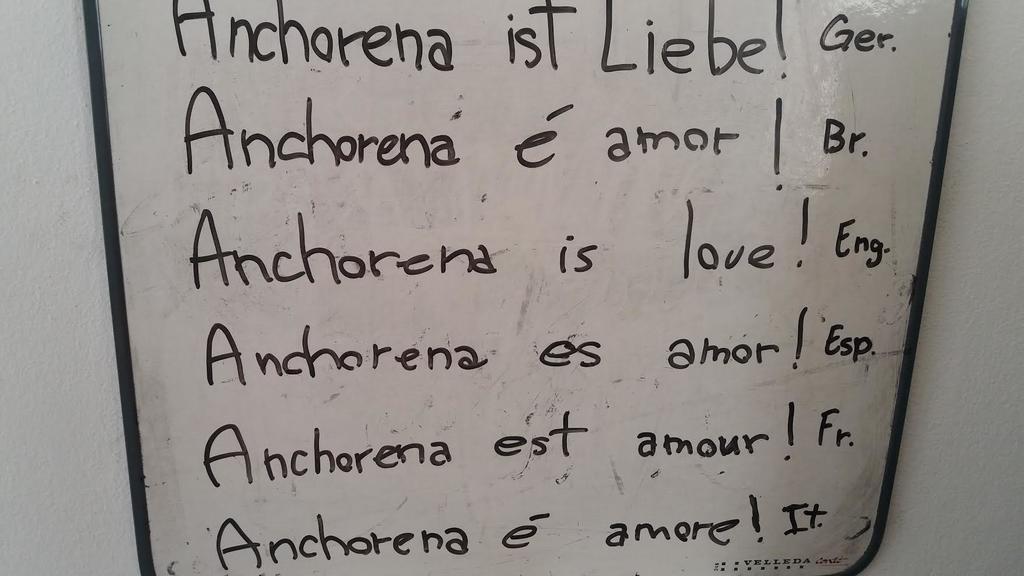 Anchorena ist Liebe! Ger.
Anchorena é amor! Br.
Anchorena is love! Eng.
Anchorena es amor! Esp.
Anchorena est amour! Fr.
Anchorena é amore! It.
VELLEDA conté